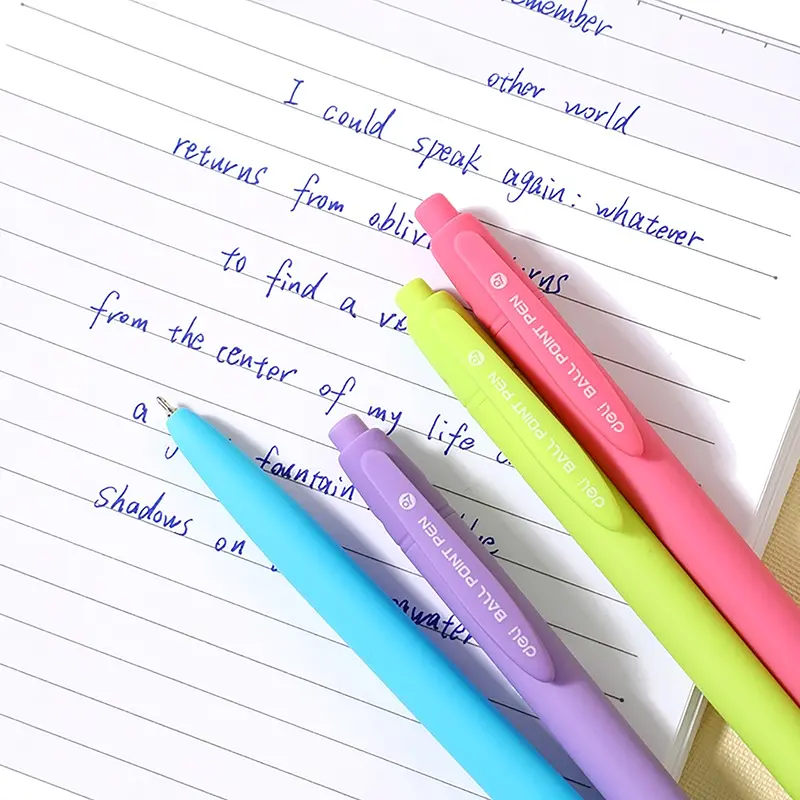 remember
other world
I could speak again: whatever
returns from oblivi urns
to find a v
from the center of my life
a fountain
shadows on
awater
deli BALL POINT PEN
deli BALL POINT PEN
deli BALL POINT PEN